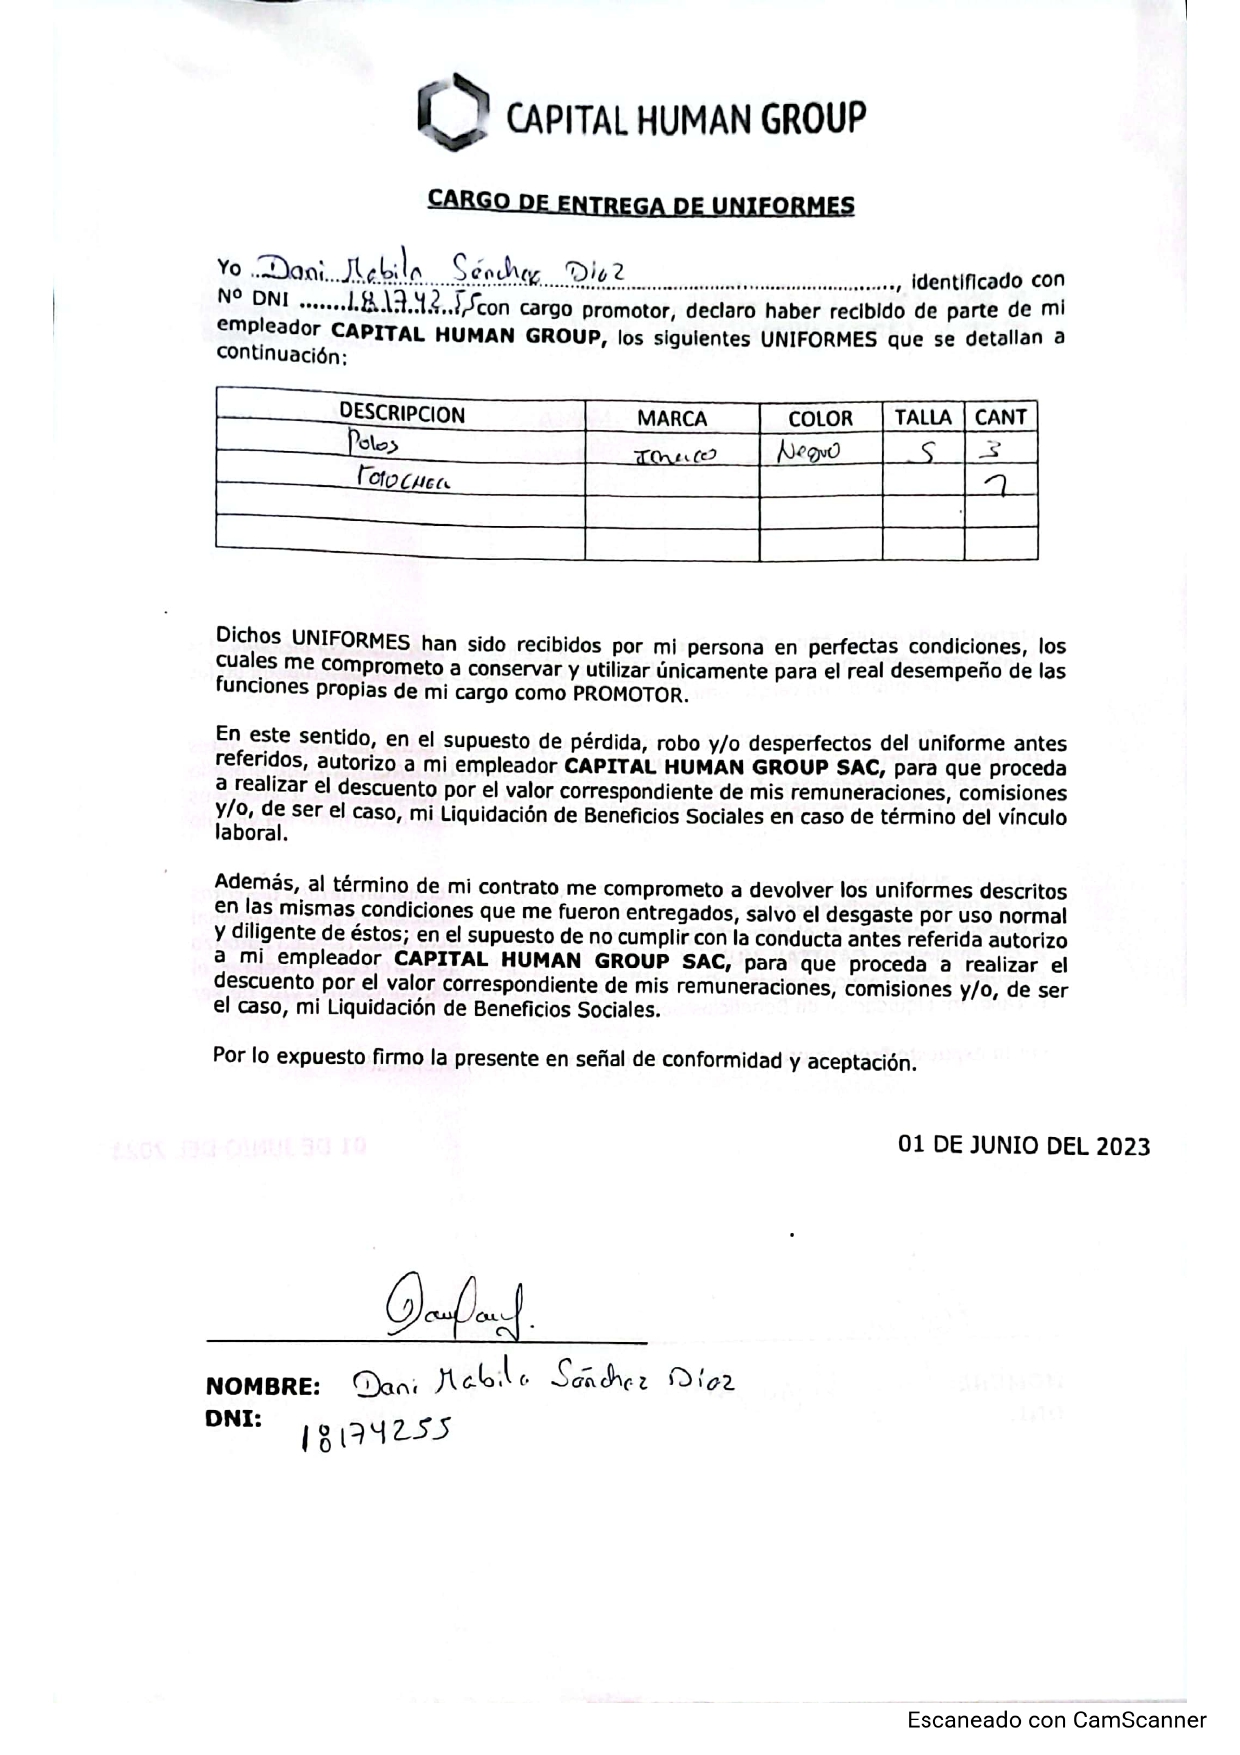 CAPITAL HUMAN GROUP
CARGO DE ENTREGA DE UNIFORMES
Yo Dani Mabila Sánchez Díaz, identificado con
Nº DNI 18174255 con cargo promotor, declaro haber recibido de parte de mi
empleador CAPITAL HUMAN GROUP, los siguientes UNIFORMES que se detallan a
continuación:
DESCRIPCION MARCA COLOR TALLA CANT
Polos Negro S 3
FOTOCHECK 1
Dichos UNIFORMES han sido recibidos por mi persona en perfectas condiciones, los
cuales me comprometo a conservar y utilizar únicamente para el real desempeño de las
funciones propias de mi cargo como PROMOTOR.
En este sentido, en el supuesto de pérdida, robo y/o desperfectos del uniforme antes
referidos, autorizo a mi empleador CAPITAL HUMAN GROUP SAC, para que proceda
a realizar el descuento por el valor correspondiente de mis remuneraciones, comisiones
y/o, de ser el caso, mi Liquidación de Beneficios Sociales en caso de término del vínculo
laboral.
Además, al término de mi contrato me comprometo a devolver los uniformes descritos
en las mismas condiciones que me fueron entregados, salvo el desgaste por uso normal
y diligente de éstos; en el supuesto de no cumplir con la conducta antes referida autorizo
a mi empleador CAPITAL HUMAN GROUP SAC, para que proceda a realizar el
descuento por el valor correspondiente de mis remuneraciones, comisiones y/o, de ser
el caso, mi Liquidación de Beneficios Sociales.
Por lo expuesto firmo la presente en señal de conformidad y aceptación.
01 DE JUNIO DEL 2023
NOMBRE: Dani Mabila Sánchez Díaz
DNI: 18174255
Escaneado con CamScanner